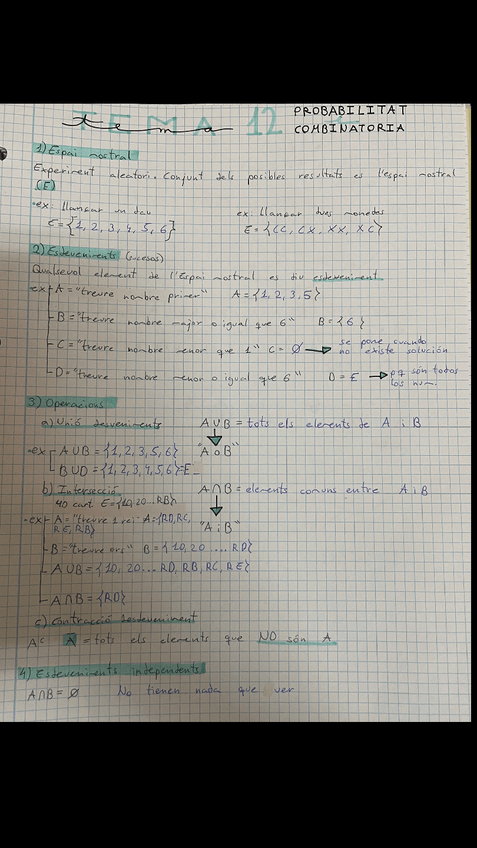 TEMA 12 PROBABILITAT
tema COMBINATORIA
1) Espai mostral
Experiment aleatori. Conjunt dels posibles resultats es l'espai mostral
(E)
-ex: llançar un dau ex: llançar dues monedes
E={1, 2, 3, 4, 5, 6} E = {CC, CX, XX, XC}
2) Esdeveniments (sucesos)
Qualsevol element de l'Espai mostral es diu esdeveniment
ex A = "treure nombre primer" A = {1, 2, 3, 5}
B = "treure nombre major o igual que 6" B = {6}
C = "treure nombre menor que 1" C = Ø → se pone cuando
no existe solución
D = "treure nombre menor o igual que 6" D = E → pq són todos
los num.
3) Operacions
a) Unió esdeveniments A∪B = tots els elements de A i B
-ex A∪B = {1, 2, 3, 5, 6} "A o B"
B∪D = {1, 2, 3, 4, 5, 6} = E
b) Intersecció A∩B = elements comuns entre A i B
40 cart. E={10, 20...RB}
-ex A = "treure 1 rei" A={RD, RC,
RE, RB} "A i B"
B = "treure ors" B = {10, 20 .... RD}
A∪B = {10, 20... RD, RB, RC, RE}
A∩B = {RD}
c) Contracció esdeveniment
Aᶜ A̅ = tots els elements que NO són A
4) Esdeveniments independents
A∩B = Ø No tienen nada que ver